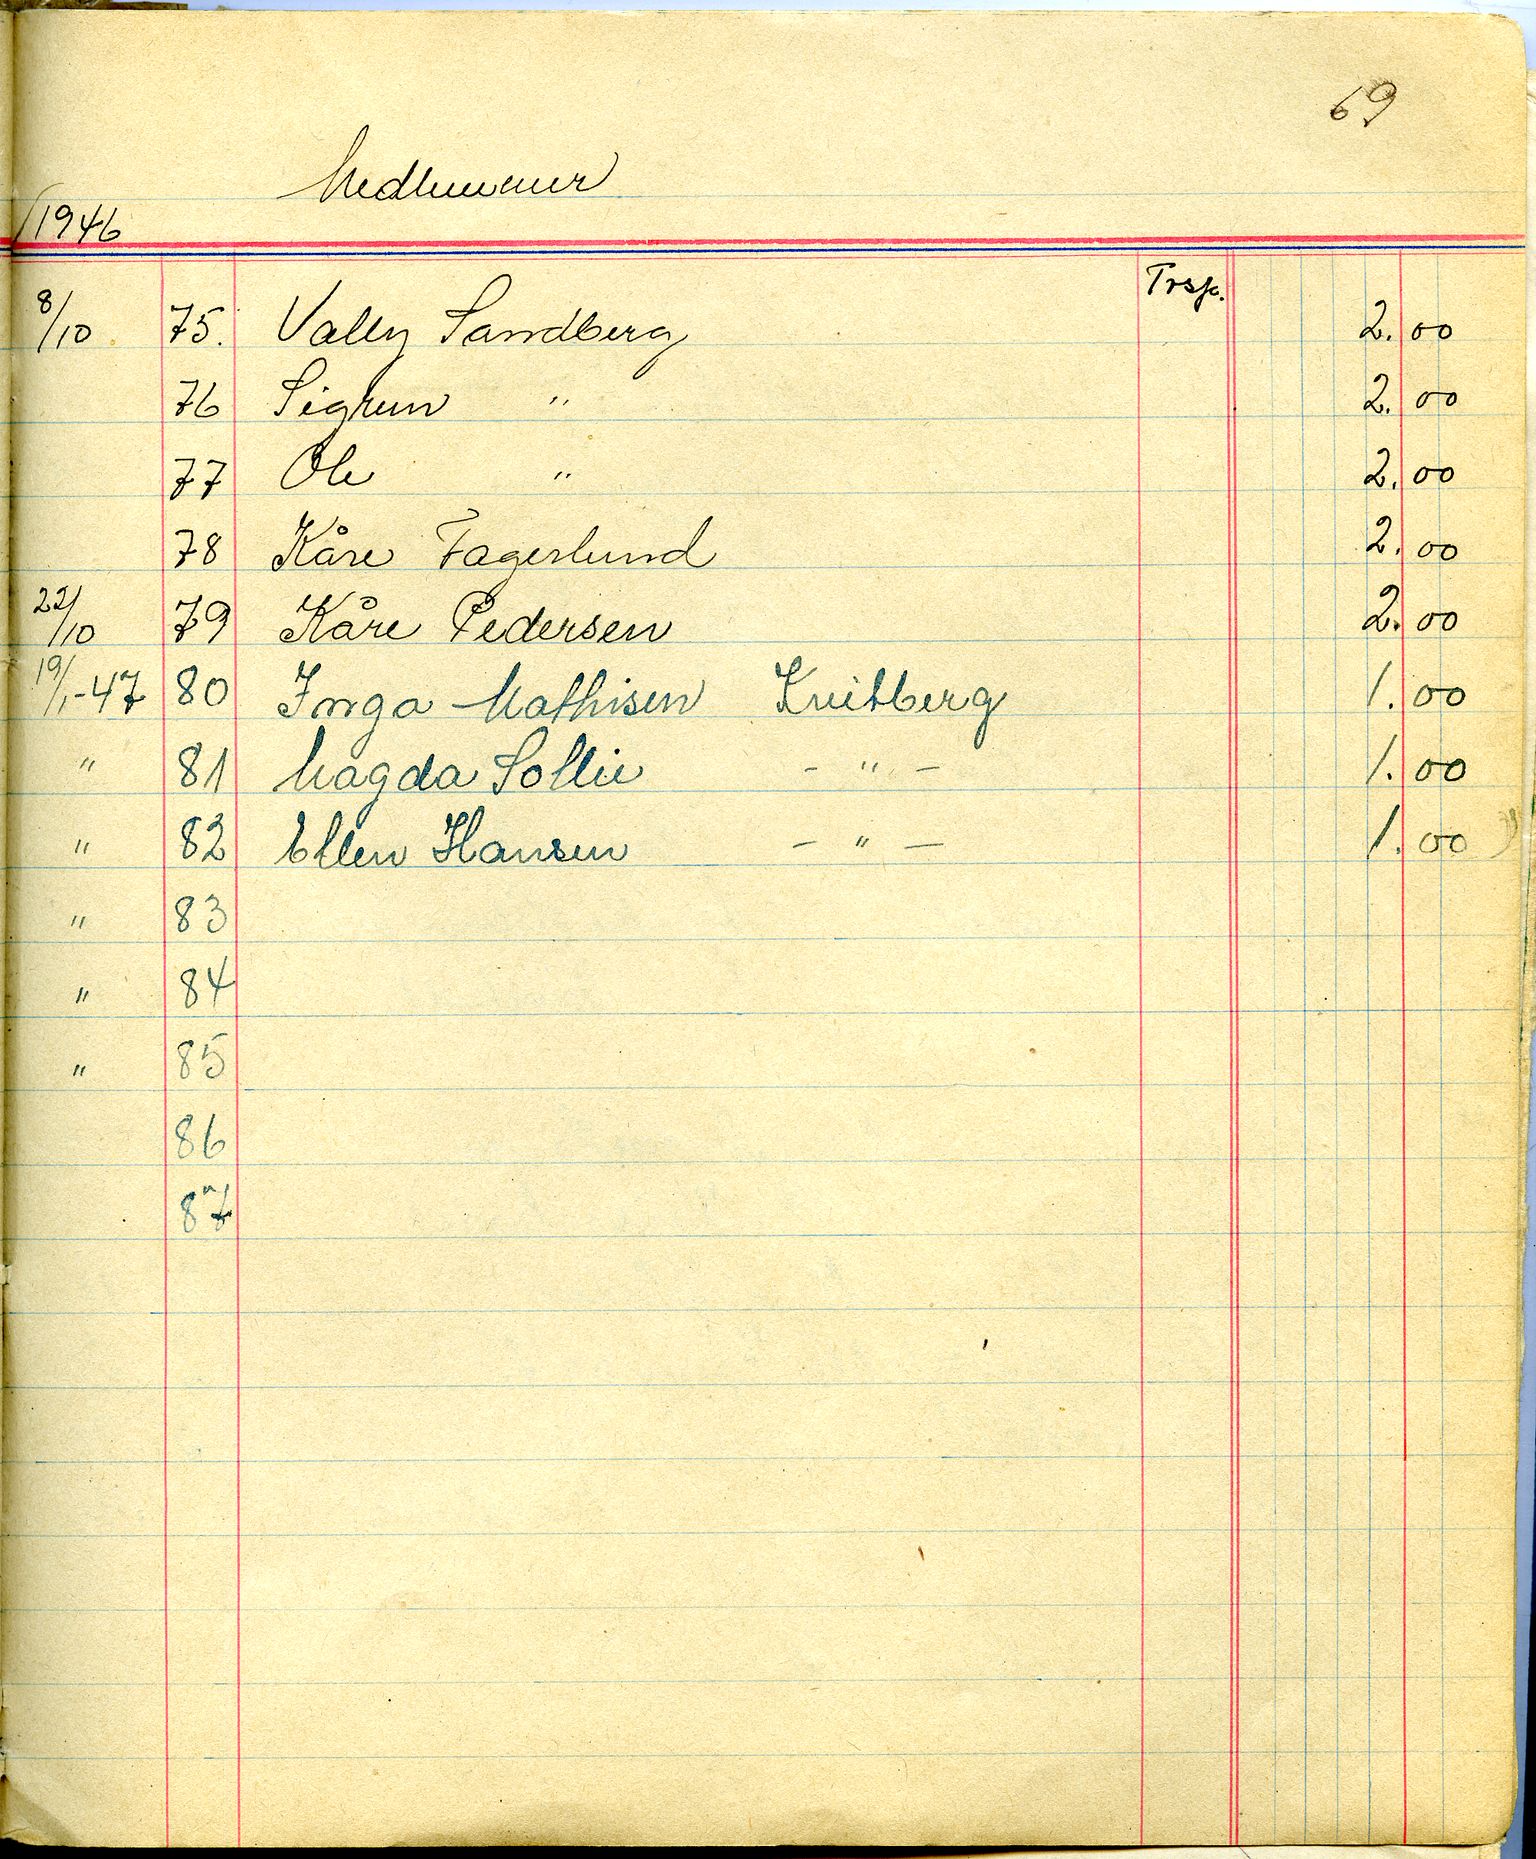 69
Medlemmer
1946
Trsp.
8/10 75. Vally Sandberg 2.00
76 Sigrun " 2.00
77 Ole " 2.00
78 Kåre Fagerlund 2.00
22/10 79 Kåre Pedersen 2.00
19/1-47 80 Inga Mathisen Kvitberg 1.00
" 81 Magda Sollie - " - 1.00
" 82 Ellen Hansen - " - 1.00
" 83
" 84
" 85
86
87